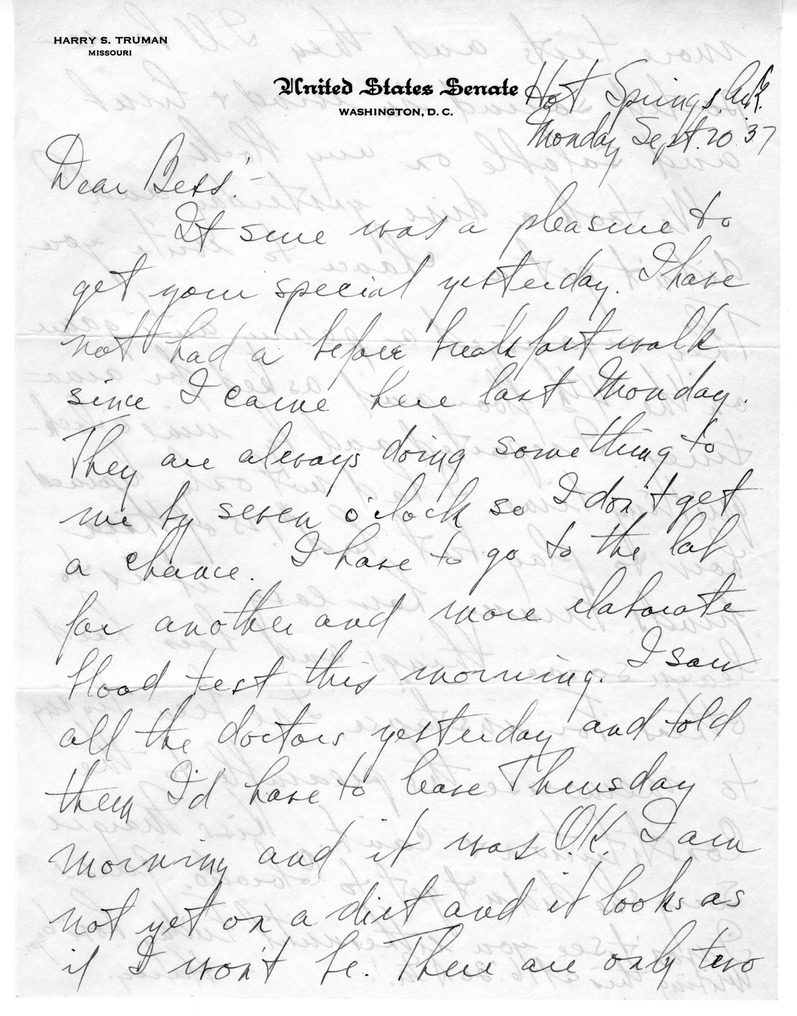 HARRY S. TRUMAN
MISSOURI
United States Senate
WASHINGTON, D. C.
Hot Springs, Ark.
Monday Sept. 20 '37
Dear Bess:-
It sure was a pleasure to
get your special yesterday. I have
not had a before breakfast walk
since I came here last Monday.
They are always doing something to
me by seven o'clock so I don't get
a chance. I have to go to the lab
for another and more elaborate
blood test this morning. I saw
all the doctors yesterday and told
them I'd have to leave Thursday
morning and it was O.K. I am
not yet on a diet and it looks as
if I won't be. There are only two